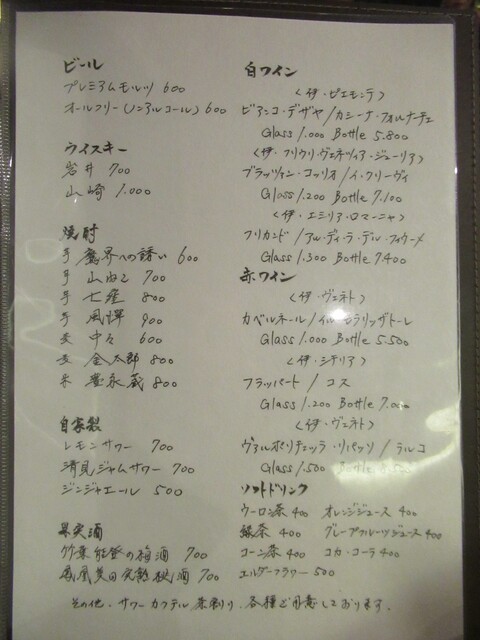 ビール
プレミアムモルツ 600
オールフリー(ノンアルコール) 600
ウイスキー
岩井 700
山崎 1.000
焼酎
芋 魔界への誘い 600
芋 山ねこ 700
芋 七窪 800
芋 風憚 900
麦 中々 600
麦 金太郎 800
米 豊永蔵 800
自家製
レモンサワー 700
清見ジャムサワー 700
ジンジャエール 500
果実酒
竹葉 能登の梅酒 700
鳳凰美田 完熟桃酒 700
白ワイン
〈伊・ピエモンテ〉
ビアンコ・デザヤ/カシーナ・フォルナーチェ
Glass 1.000 Bottle 5.800
〈伊・フリウリ・ヴェネツィア・ジューリア〉
ブラッツァン・コッリオ/イ・クリーヴィ
Glass 1.200 Bottle 7.100
〈伊・エミリア・ロマーニャ〉
フリカンド/アル・ディ・ラ・デル・フィウーメ
Glass 1.300 Bottle 7.400
赤ワイン
〈伊・ヴェネト〉
カベルネール/イル・モラリッザトーレ
Glass 1.000 Bottle 5.500
〈伊・シチリア〉
フラッパート/コス
Glass 1.200 Bottle 7.000
〈伊・ヴェネト〉
ヴァルポリチェッラ・リパッソ/ラルコ
Glass 1.500 Bottle
ソフトドリンク
ウーロン茶 400 オレンジジュース 400
緑茶 400 グレープフルーツジュース 400
コーン茶 400 コカ・コーラ 400
エルダーフラワー 500
その他・サワー カクテル 茶割り、各種ご用意しております。